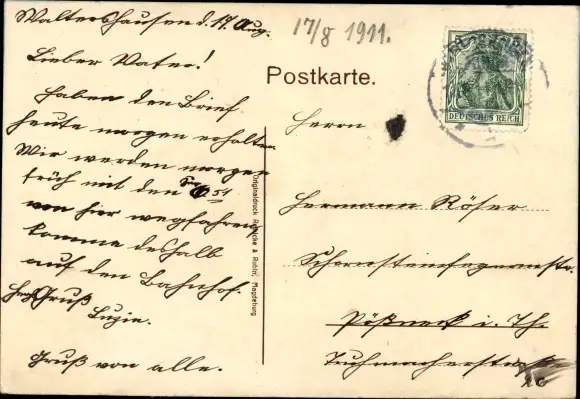 Waltershausen d. 17. Aug.
17/8 1911.
Lieber Vater!
Haben den Brief
heute morgen erhalten
Wir werden morgen
früh mit den 6 54
von hier wegfahren
komme deshalb
auf den Bahnhof.
Gruß
Luzie.
Gruß von alle.
Postkarte.
Herrn
Hermann Röser
Schornsteinfegermstr.
Pößneck i. Th.
Tuchmacherstraße
DEUTSCHES REICH
Originaldruck & Rubin, Magdeburg